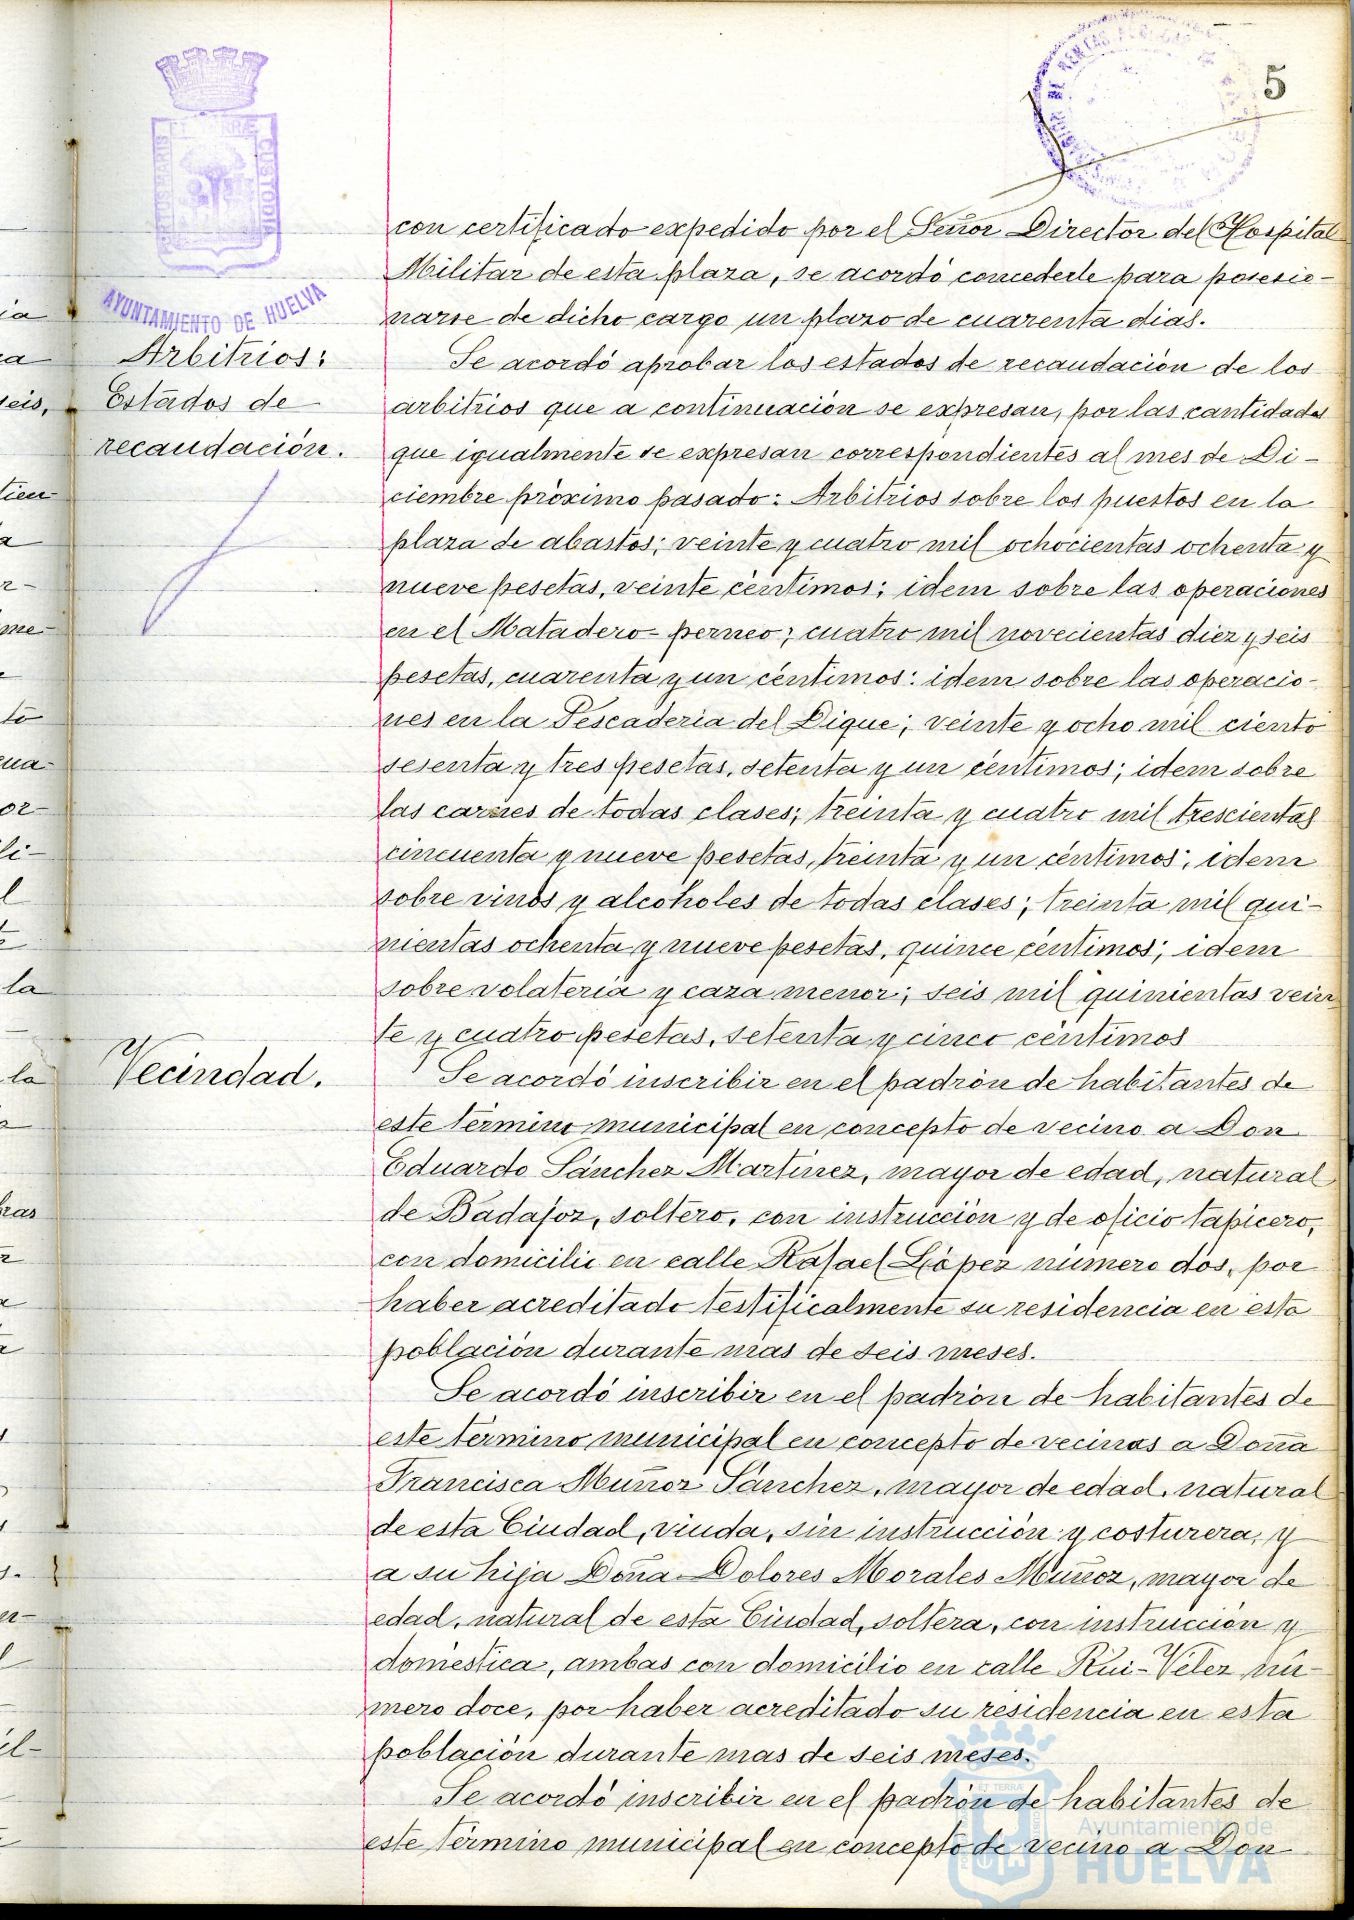 5
PORTUS MARIS ET TERRÆ CUSTODIA
AYUNTAMIENTO DE HUELVA
con certificado expedido por el Señor Director del Hospital
Militar de esta plaza, se acordó concederle para posesio-
narse de dicho cargo un plazo de cuarenta dias.
Arbitrios:
Estados de
recaudación.
Se acordó aprobar los estados de recaudación de los
arbitrios que a continuación se expresan, por las cantidades
que igualmente se expresan correspondientes al mes de Di-
ciembre próximo pasado: Arbitrios sobre los puestos en la
plaza de abastos; veinte y cuatro mil ochocientas ochenta y
nueve pesetas, veinte céntimos; idem sobre las operaciones
en el Matadero-perneo; cuatro mil novecientas diez y seis
pesetas, cuarenta y un céntimos: idem sobre las operacio-
nes en la Pescaderia del Dique; veinte y ocho mil ciento
sesenta y tres pesetas, setenta y un céntimos; idem sobre
las carnes de todas clases; treinta y cuatro mil trescientas
cincuenta y nueve pesetas, treinta y un céntimos; idem
sobre vinos y alcoholes de todas clases; treinta mil qui-
nientas ochenta y nueve pesetas, quince céntimos; idem
sobre volateria y caza menor; seis mil quinientas vein
te y cuatro pesetas, setenta y cinco céntimos
Vecindad.
Se acordó inscribir en el padrón de habitantes de
este término municipal en concepto de vecino a Don
Eduardo Sánchez Martinez, mayor de edad, natural
de Badajoz, soltero, con instrucción y de oficio tapicero,
con domicilio en calle Rafael López número dos, por
haber acreditado testificalmente su residencia en esta
población durante mas de seis meses.
Se acordó inscribir en el padrón de habitantes de
este término municipal en concepto de vecinas a Doña
Francisca Muñoz Sánchez, mayor de edad, natural
de esta Ciudad, viuda, sin instrucción y costurera, y
a su hija Doña Dolores Morales Muñoz, mayor de
edad, natural de esta Ciudad, soltera, con instrucción y
doméstica, ambas con domicilio en calle Rui-Vélez nú-
mero doce, por haber acreditado su residencia en esta
población durante mas de seis meses.
Se acordó inscribir en el padrón de habitantes de
este término municipal en concepto de vecino a Don
Ayuntamiento de
HUELVA